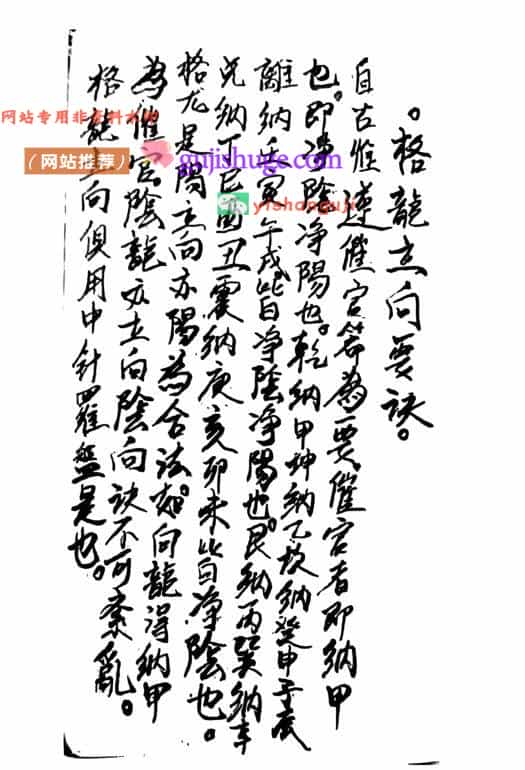 格龍立向要訣。
自古惟遵催官等為要催官者即納甲
也。即净陰净陽也。乾納甲坤納乙坎納癸申子辰
離納壬寅午戌皆白净陰净陽也。艮納丙巽納辛
兌納丁巳酉丑震納庚亥卯未皆白净陰也。
格龙是陽立向亦陽為合法。如向龍得納甲
為催官。陰龍亦立向陰向訣不可紊亂。
格龍立向俱用中針羅盤是也。
网站专用非
（网站推荐）
gujishuge.com
yishanguji